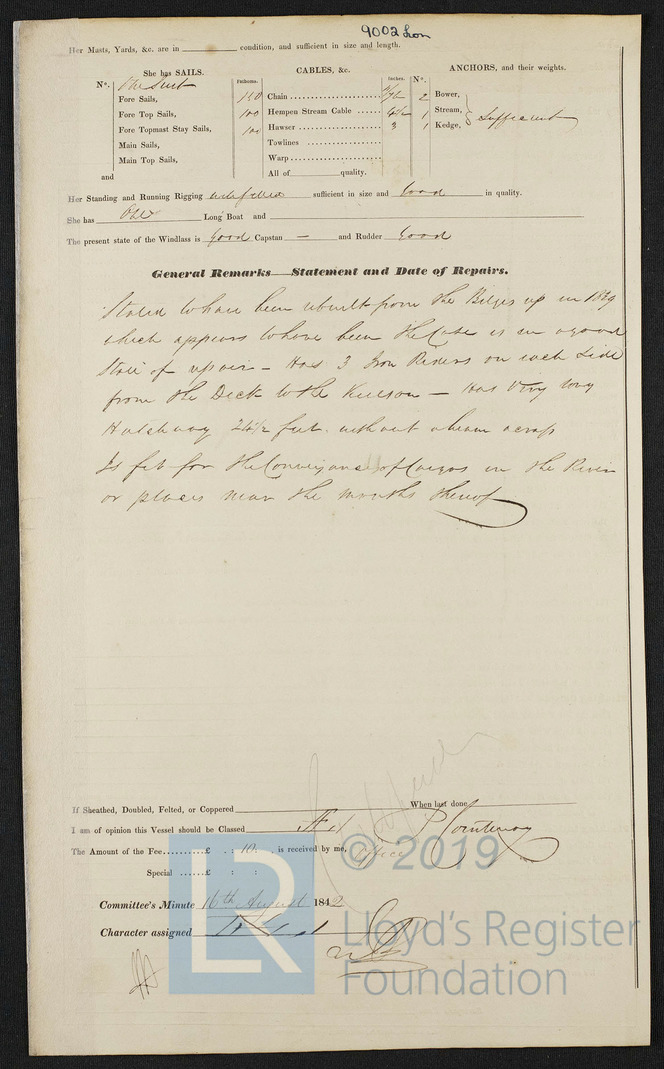 9002 Lon
Her Masts, Yards, &c. are in condition, and sufficient in size and length.
She has SAILS.
CABLES, &c.
ANCHORS, and their weights.
N°.
Fathoms.
Inches.
N°.
One Suit
Fore Sails,
Fore Top Sails,
Fore Topmast Stay Sails,
Main Sails,
Main Top Sails,
and
150 Chain
100 Hempen Stream Cable
100 Hawser 3
Towlines
Warp
All of quality.
2 Bower,
1 Stream,
1 Kedge,
Sufficient
Her Standing and Running Rigging sufficient in size and Good in quality.
She has One Long Boat and
The present state of the Windlass is Good Capstan — and Rudder Good
General Remarks—Statement and Date of Repairs.
Stated to have been rebuilt from the Bilges up in 1839
which appears to have been the Case is in a good
State of repair – Has 3 Iron Riders on each Side
from the Deck to the Keelson – Has Very long
Hatchway 24½ feet without a beam across
Is fit for the Conveyance of Cargos in the River
or places near the mouths thereof
If Sheathed, Doubled, Felted, or Coppered When last done
I am of opinion this Vessel should be Classed Æ 1 P Courtenay
The Amount of the Fee £ : 10 : is received by me,
Office
Special £ : :
Committee's Minute 16th August 1842
Character assigned
© 2019
LR
Lloyd's Register
Foundation